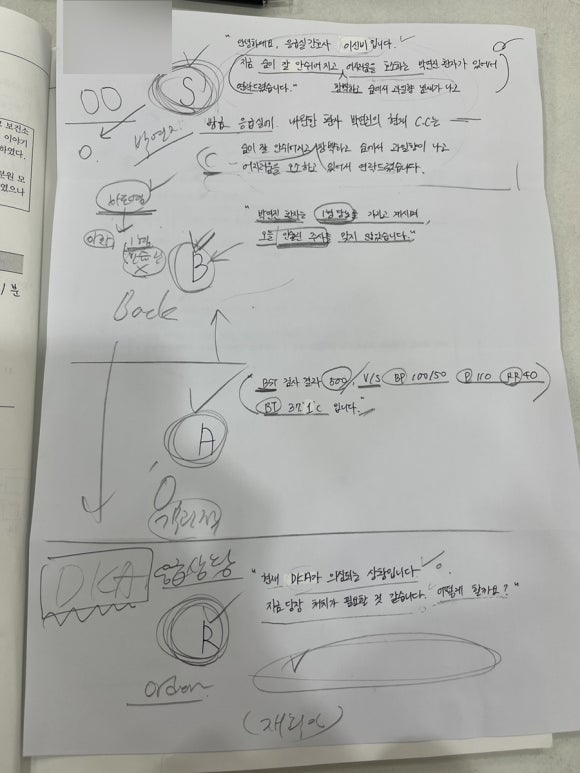 "안녕하세요, 응급실 간호사 이신비 입니다.
지금 숨이 잘 안쉬어지고, 어지러움을 호소하는 박연진 환자가 있어서
연락드렸습니다." 창백하고 숨에서 과일향 냄새가 나고
S
OO
방금 응급실에 내원한 환자 박연진의 현재 C.C는
숨이 잘 안쉬어지고 창백하고 숨에서 과일향이 나고
어지러움을 호소하고 있어서 연락드렸습니다.
C
"박연진 환자는 1형 당뇨를 가지고 계시며,
오늘 인슐린 주사를 맞지 않았습니다."
1형
B
Back
"BST 검사 결과 500, V/S BP 100/50 P 110 RR 40
BT 37.1℃ 입니다."
A
객관적
DKA
응급상황
"현재 DKA가 의심되는 상황입니다
지금 당장 처치가 필요할 것 같습니다. 어떻게 할까요?"
R
order
보건소
이야기
하였다.
분원 모
였으나
1분